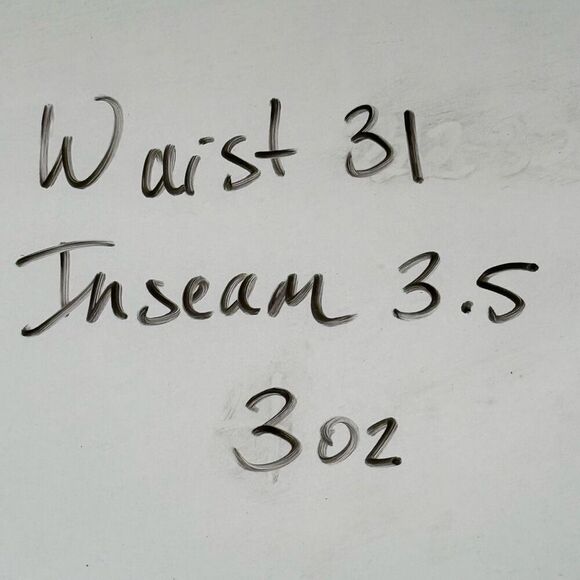 Waist 31
Inseam 3.5
3oz